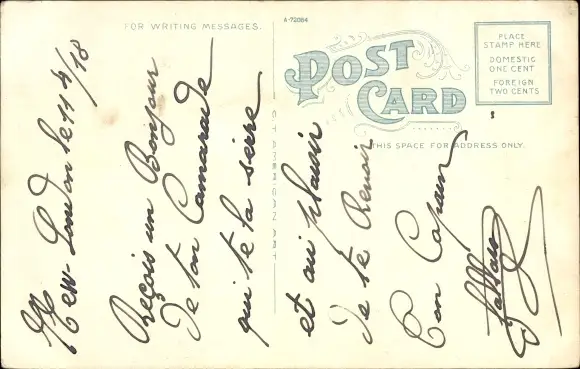 FOR WRITING MESSAGES.
A-72084
POST CARD
PLACE
STAMP HERE
DOMESTIC
ONE CENT
FOREIGN
TWO CENTS
THIS SPACE FOR ADDRESS ONLY.
New London le 11 4/18
Reçois un Bonjour
De ton Camarade
qui te la serre
et au plaisir
De te Revoir
Ton Copain